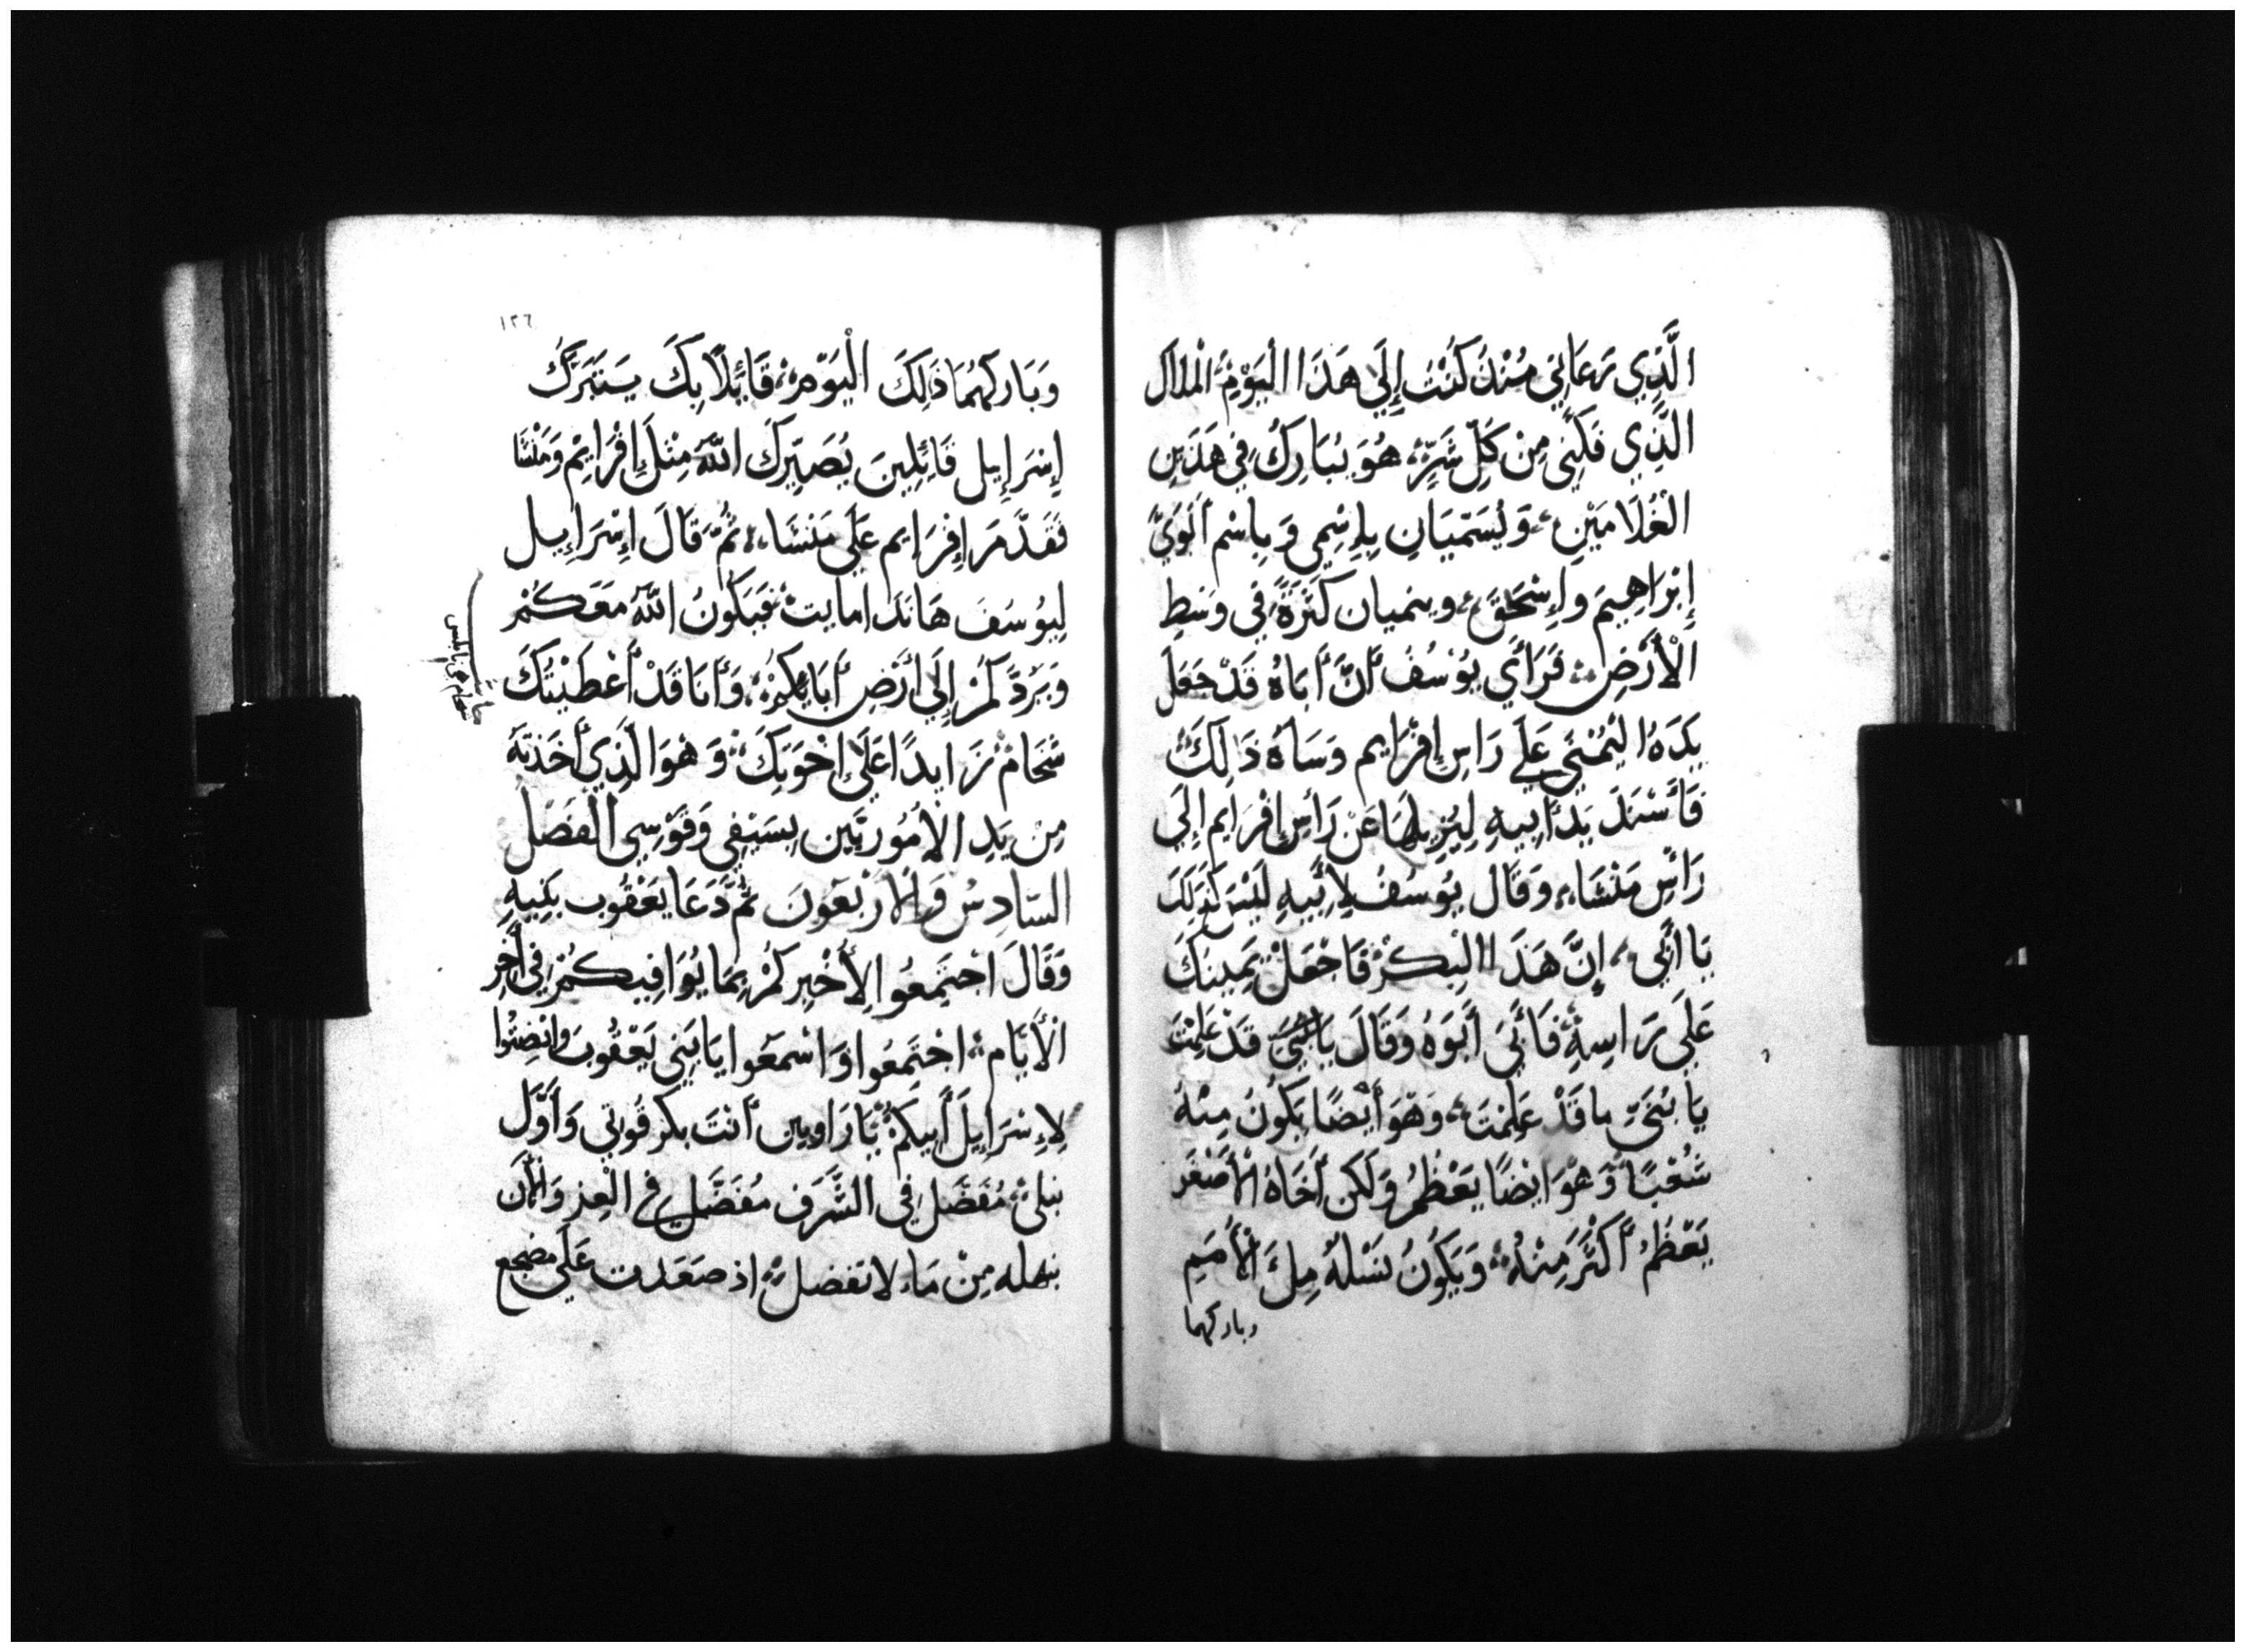 الَّذِي رَعَانِي مُنْذُ كُنْتُ إِلَي هَذَا الْيَوْمِ الْملاك
الَّذِي فَكَّنِي مِنْ كَلِّ شَرٍّ هُوَ يُبَارِكُ فِي هَذَيْنِ
الْغُلَامَيْنِ وَيُسَمَّيَانِ بِإِسْمِي وَبِاسْم أَبَوَيَّ
إِبْرَاهِيمَ وإِسْحَقَ وينميان كَثَرَةً فِي وَسَطِ
الْأَرْضِ فَرَأَي يُوْسُفُ أَنَّ أَبَاهُ قَدْ جَعَلَ
يَدَهُ الْيُمْنَي عَلَي رَاسِ إِفْرَايم وَسَاهُ ذَالِكَ
فَأَسْنَدَ يَدَ أَبِيهِ لِيُزِيلَهَا عَنْ رَأْسِ إِفْرَايم إِلَي
رَأْسِ مَنَشَاء وَقَالَ يُوسُفُ لِأَبِيهِ لَيْسَ كَذَلِكَ
يَا أَبِي إِنَّ هَذَا الْبِكْرُ فَاجْعَلْ يَمِينَكَ
عَلَي رَاسِهِ فَأَبَي أَبَوَهُ وَقَالَ يَا بُنَيَّ قَدْ عَلِمْتَ
يَا بُنَيَّ ما قَدْ عَلِمْتَ وَهُوَ أَيْضًا يَكُونُ مِنْهُ
شُعْبًا وَهُوَ ايْضًا يَعْظُمُ وَلَكن أَخَاهُ الْأَصْغَر
يَعْظُمُ أَكْثَرَ مِنْهُ وَيَكُونُ نَسْلُهُ مِلَ الْأُمَمِ
وباركهما
١٢٦
وَبَاركهُمَا ذَلِكَ الْيَوْمِ قَائِلًا بِكَ يَتَبَرَّكُ
إِسْرَإِيل قَائِلِينَ يُصَيِّركَ اللَّهُ مِثْلَ إِفْرَايِمْ وَمَنْشَا
فَقَدَّمَ إِفْرَايم عَلَي مَنَشَاء ثُمَّ قَالَ إِسْرَإِيل
لِيُوسُفَ هَانَذا مايت فَيَكُونُ اللَّهُ مَعَكُمْ
وَيَرُدَّكُمْ إِلَي أَرْضِ أَبَايِكُمْ وَأَنَا قَدْ أَعْطَيْتُكَ
شَخَامْ زَايدًا عَلَي إِخْوَتِكَ وَهُوَ الَّذِي أَخَذْتَهُ
مِنْ يَدِ الْأَمُورِيِّين بِسَيْفِي وَقَوْسِي الفصل
السَّادِسُ وَالارْبَعُونَ ثُمَّ دَعَا يَعْقُوب بَنِيهِ
وَقَالَ اجْتَمِعُوا لِأُخْبِركُمْ بِمَا يُوَافِيكُمْ فِي أَخِرِ
الْأَيَّام اجْتَمِعُوا وَاسْمَعُوا يَا بَنِي يَعْقُوبَ وانْصِتُوا
لِإِسْرَايِلَ أَبِيكُمْ يَا رَاوبين أَنْتَ بِكر قُوتِي وَأَوَّل
نيلي مُفَضَّل فِي الشَّرَف مُفَضَّل فِي الْعِز وَالْآنَ
مِنْ مَاء لا تفضل اذ صَعَدت عَلَي مضجع